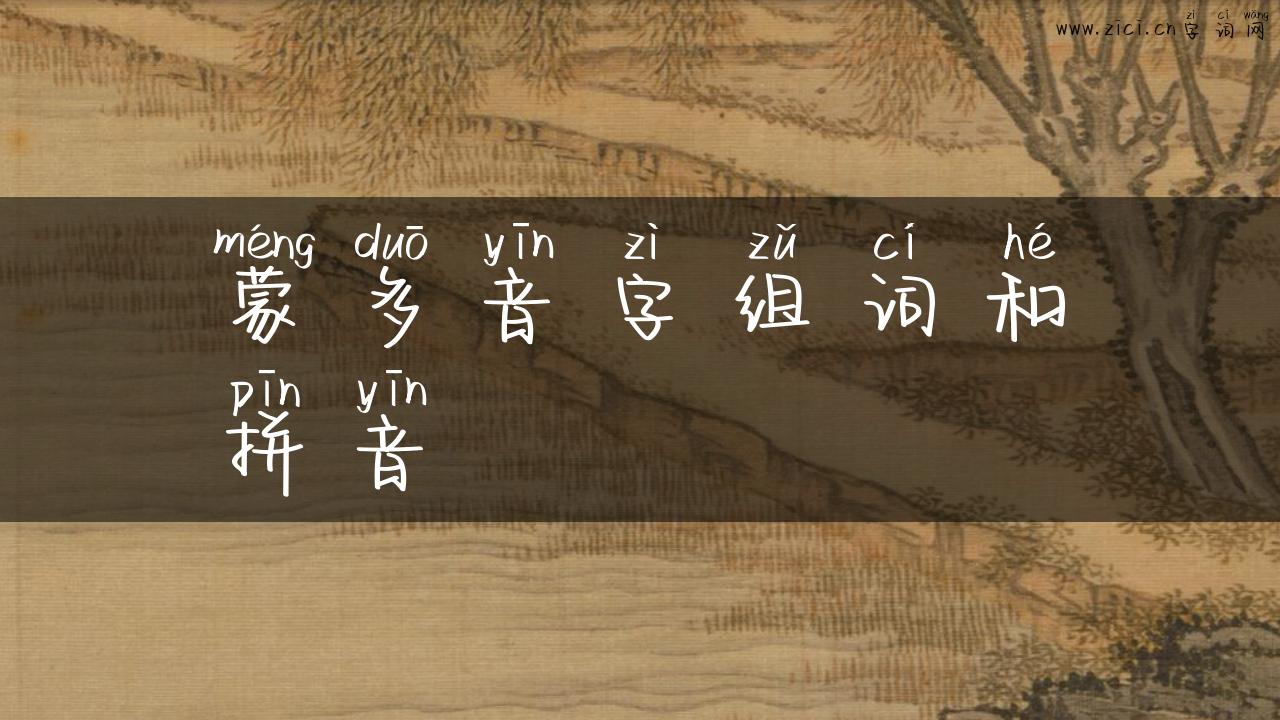 zì cí wǎng
www.zici.cn字词网
méng duō yīn zì zǔ cí hé
蒙多音字组词和
pīn yīn
拼音